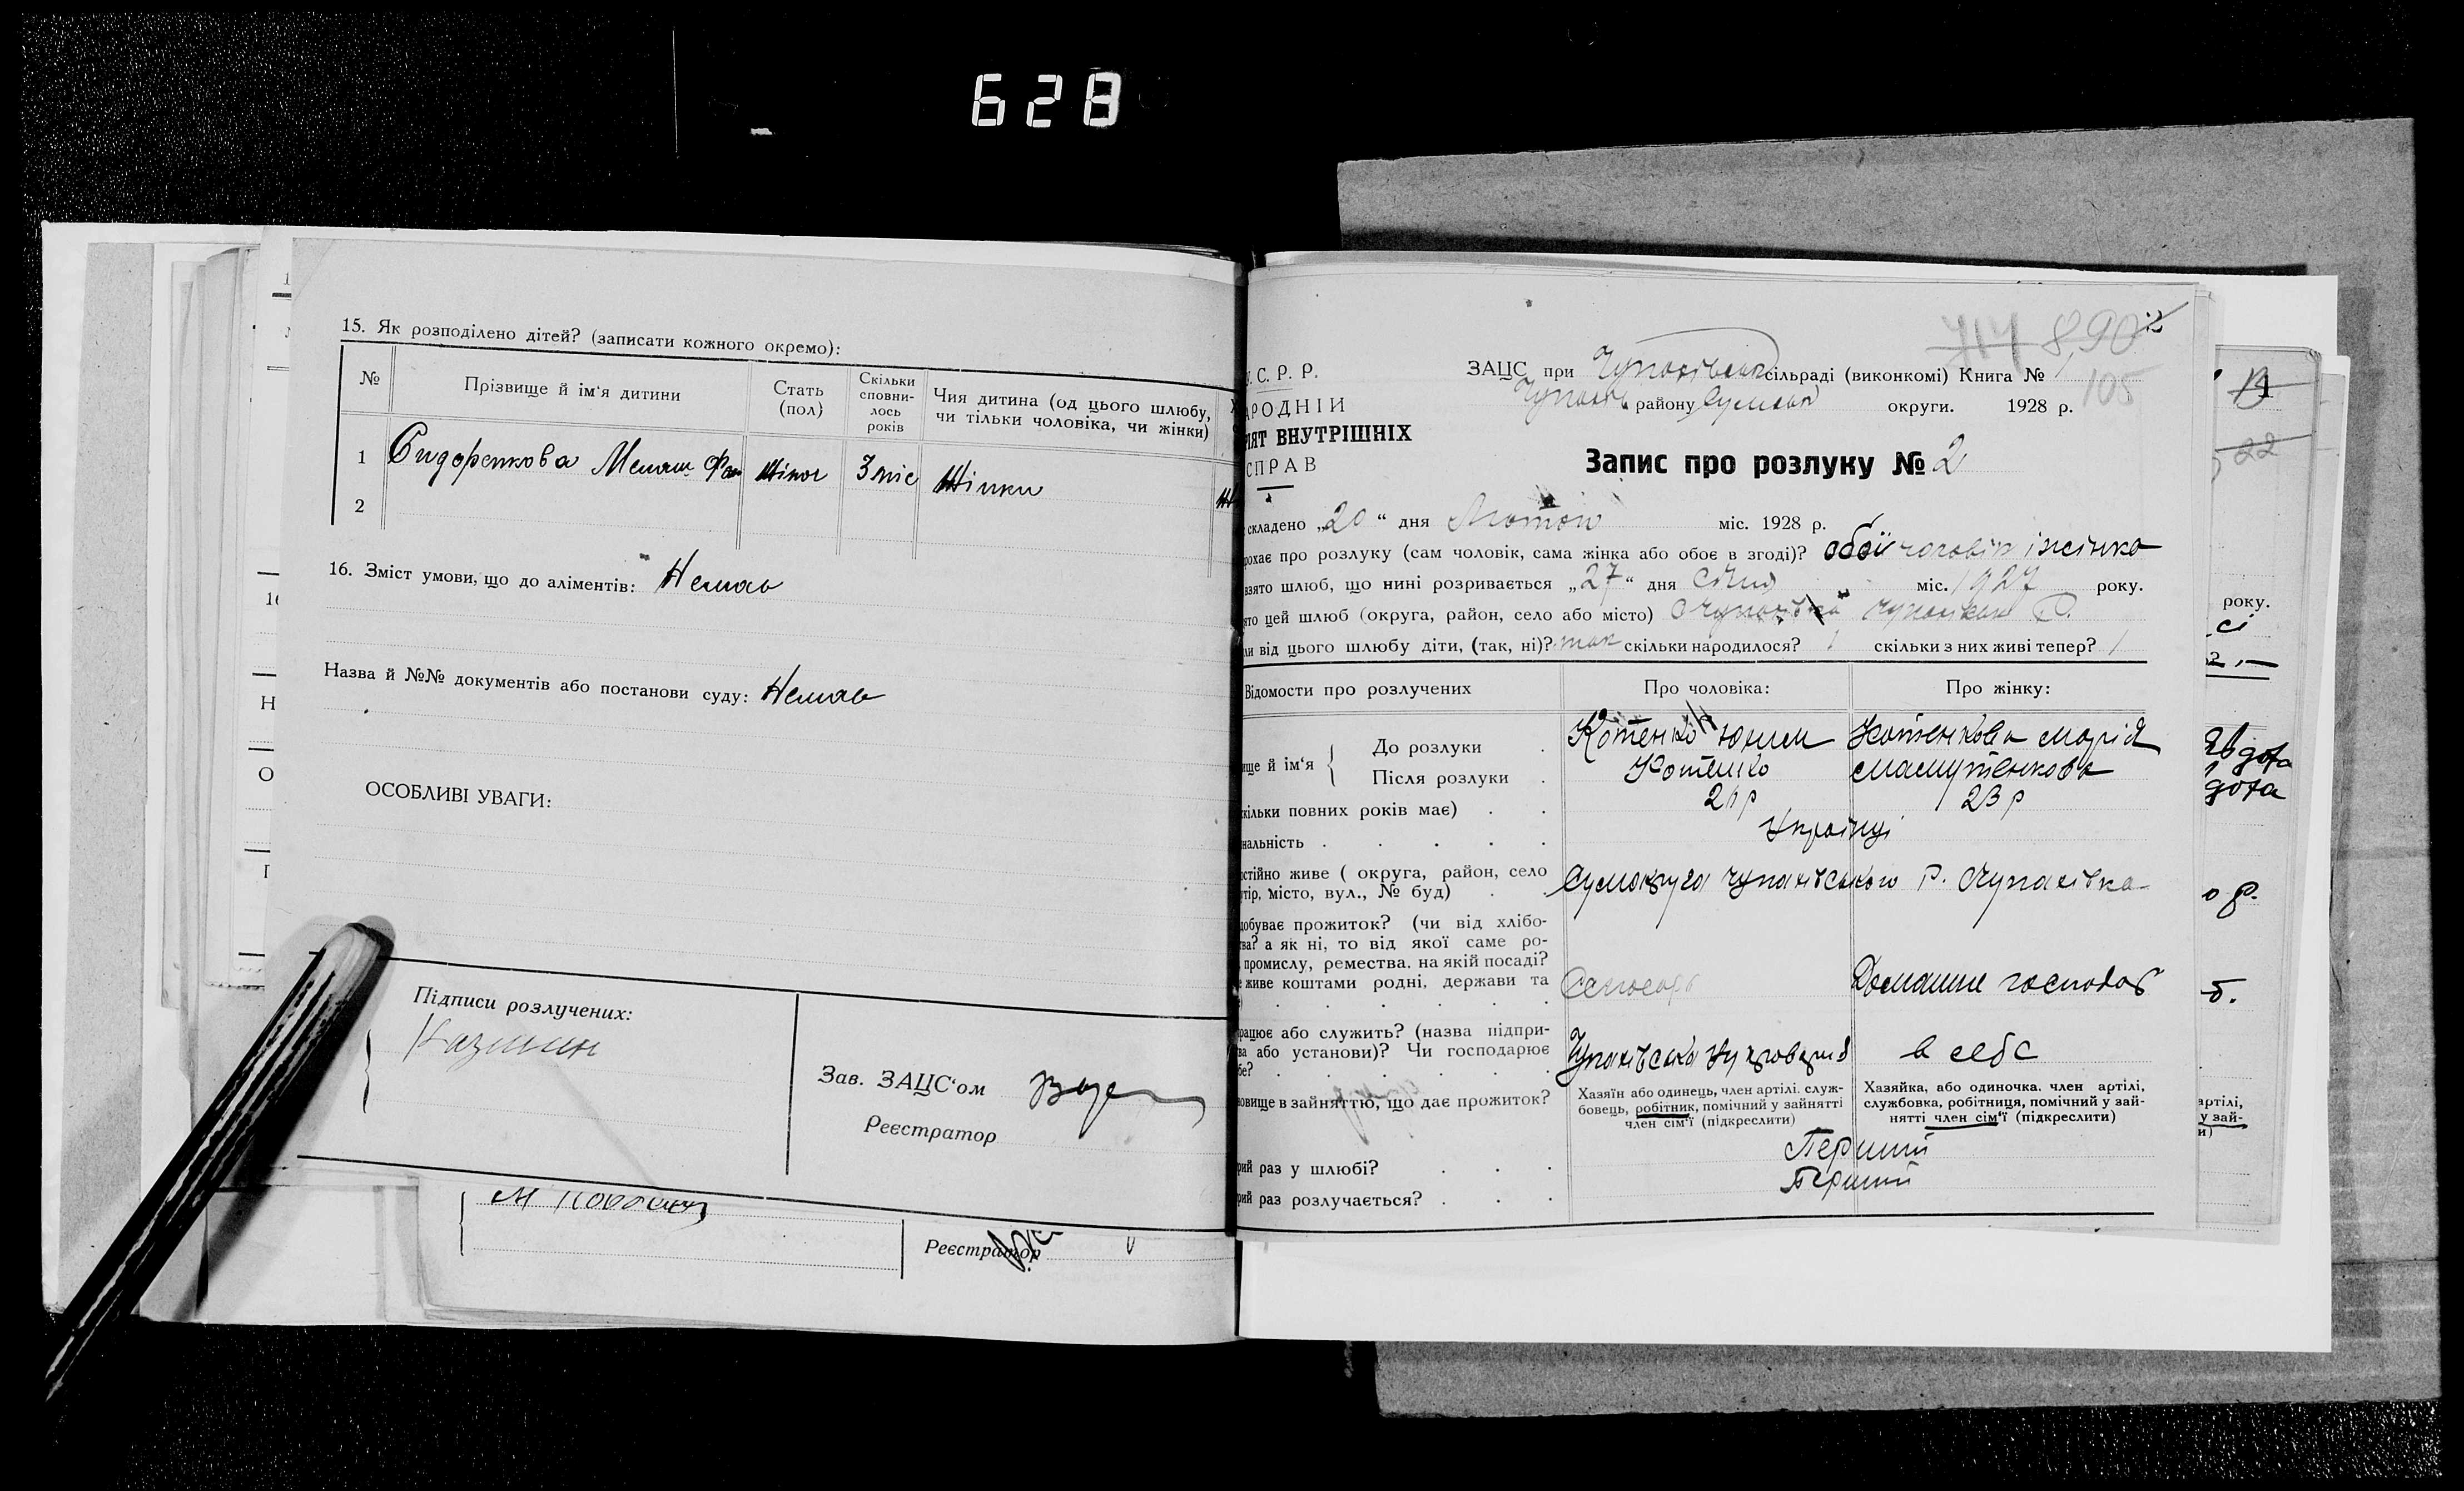 628
15. Як розподілено дітей? (записати кожного окремо):
№ Прізвище й ім'я дитини Стать (пол) Скільки сповнилось років Чия дитина (од цього шлюбу, чи тільки чоловіка, чи жінки)
1 Сидоренкова Мелаш. Жіноч 3 міс Жінки
2
16. Зміст умови, що до аліментів: Немає
Назва й №№ документів або постанови суду: Немає
ОСОБЛИВІ УВАГИ:
Підписи розлучених:
Зав. ЗАЦС'ом
Реєстратор
Реєстратор
717 8,90
105
У. С. Р. Р.
АРОДНІЙ
ІЯТ ВНУТРІШНІХ
СПРАВ
ЗАЦС при Чупахівськ сільраді (виконкомі) Книга № 1
Чупахів району Сумськ округи. 1928 р.
Запис про розлуку № 2
складено „20“ дня Лютого міс. 1928 р.
рохає про розлуку (сам чоловік, сама жінка або обоє в згоді)? обої чоловік і жінка
взято шлюб, що нині розривається „27“ дня Січня міс. 1927 року.
ято цей шлюб (округа, район, село або місто) Чупахівка Чупахівськ Р.
ли від цього шлюбу діти, (так, ні)? так скільки народилося? 1 скільки з них живі тепер? 1
Відомости про розлучених Про чоловіка: Про жінку:
ище й ім'я { До розлуки Котенко Юхим Котенкова Марія
Після розлуки Котенко Мамутенкова
кільки повних років має) 26 р 23 р
нальність Українці
остійно живе ( округа, район, село
тір, місто, вул., № буд) Сумокруга Чупахівського Р. Чупахівка
добуває прожиток? (чи від хлібо-
ва? а як ні, то від якої саме ро-
промислу, ремества. на якій посаді?
живе коштами родні, держави та Слюсарь Домашнє господар
рацює або служить? (назва підпри-
ва або установи)? Чи господарює
бе? Чупахівська Цукроварня в себе
овище в зайняттю, що дає прожиток? Хазяїн або одинець, член артілі, служ-
бовець, робітник, помічний у зайнятті
член сім'ї (підкреслити)
Хазяйка, або одиночка, член артілі,
службовка, робітниця, помічний у зай-
нятті член сім'ї (підкреслити)
рий раз у шлюбі? Перший
рий раз розлучається? Перший
22
року.
дота
о р.
б.
артілі,
у зай-
и)